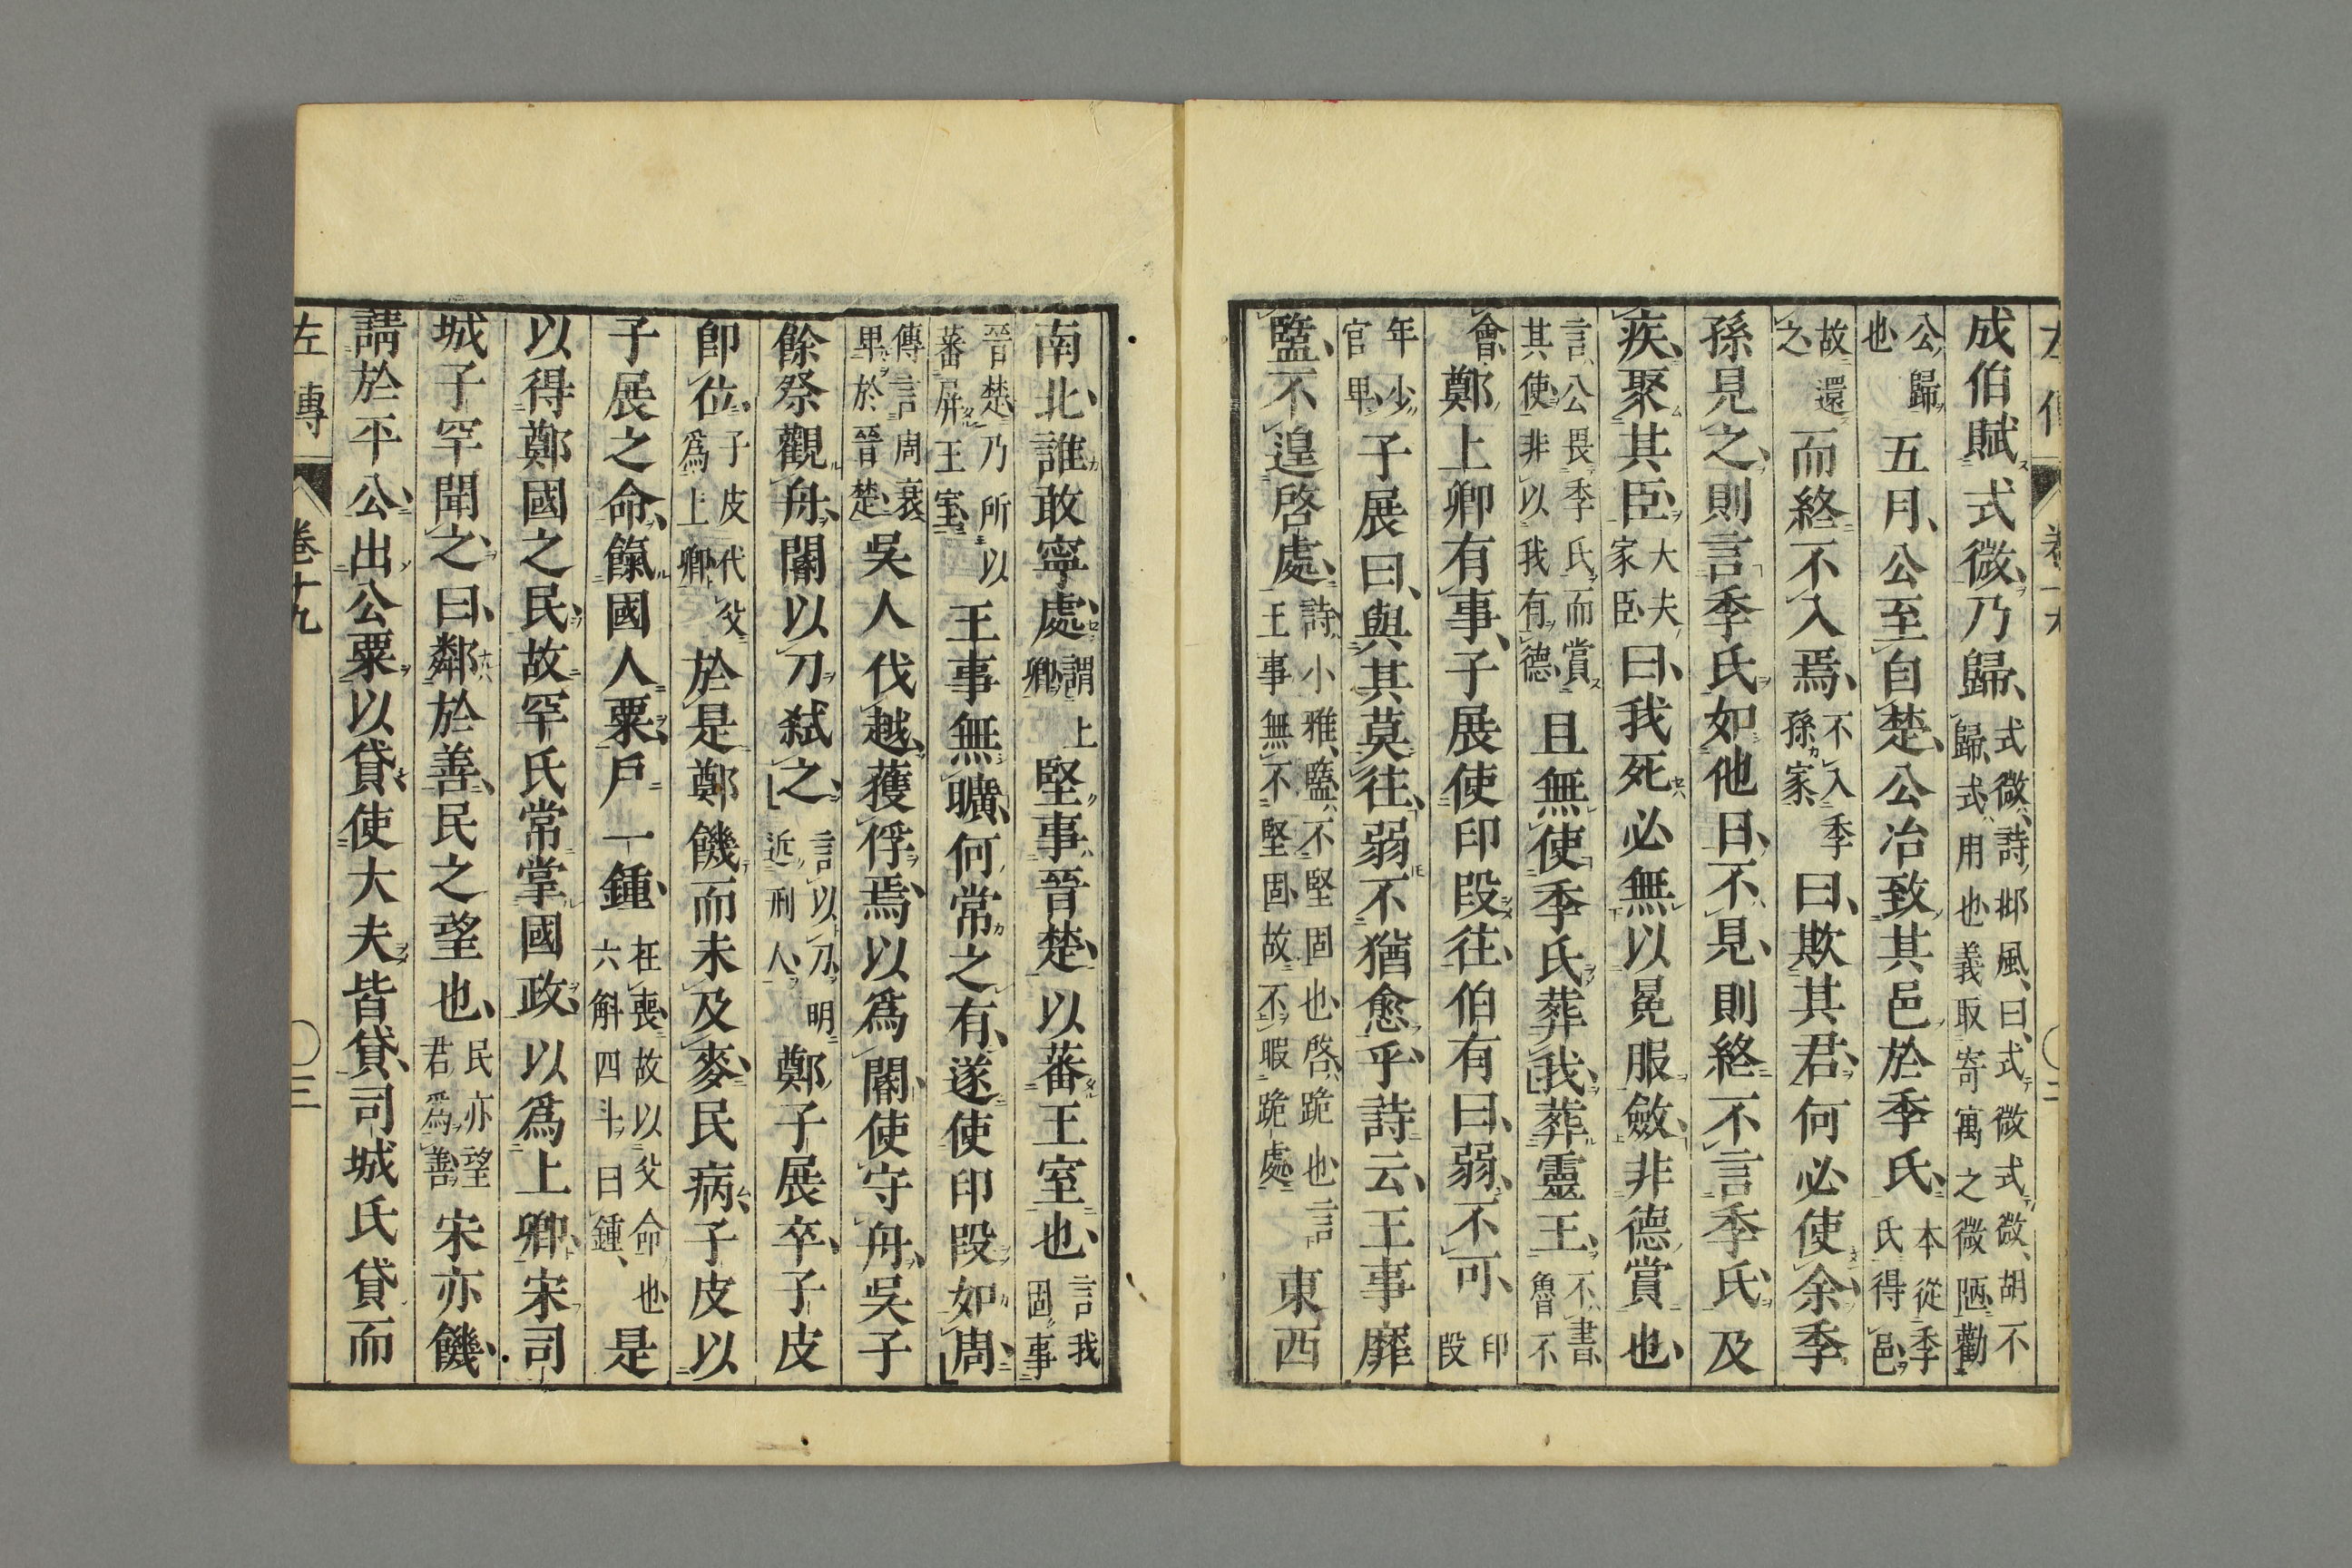 成伯賦式微乃歸式微詩邶風曰式微式微胡不歸式用也義取寄寓之微陋勸
公歸也五月公至自楚公冶致其邑於季氏本從季氏得邑
故還之而終不入焉不入季孫家曰欺其君何必使余季
孫見之則言季氏如他日不見則終不言季氏及
疾聚其臣大夫家臣曰我死必無以冕服斂非德賞也
言公畏季氏而賞其使非以我有德且無使季氏葬我葬靈王不書魯不
會鄭上卿有事子展使印段往伯有曰弱不可印段
年少官卑子展曰與其莫往弱不猶愈乎詩云王事靡
盬不遑啓處詩小雅盬不堅固也啓跪也言王事無不堅固故不暇跪處東西
南北誰敢寧處謂上卿堅事晉楚以蕃王室也言我固事
晉楚乃所以蕃屏王室王事無曠何常之有遂使印段如周
傳言周衰卑於晉楚吳人伐越獲俘焉以爲閽使守舟吳子
餘祭觀舟閽以刀弑之言以刀明近刑人鄭子展卒子皮
卽位子皮代父爲上卿於是鄭饑而未及麥民病子皮以
子展之命餼國人粟戶一鍾在喪故以父命也六斛四斗曰鍾是
以得鄭國之民故罕氏常掌國政以爲上卿宋司
城子罕聞之曰鄰於善民之望也民亦望君爲善宋亦饑
請於平公出公粟以貸使大夫皆貸司城氏貸而
左傳 卷十九 三